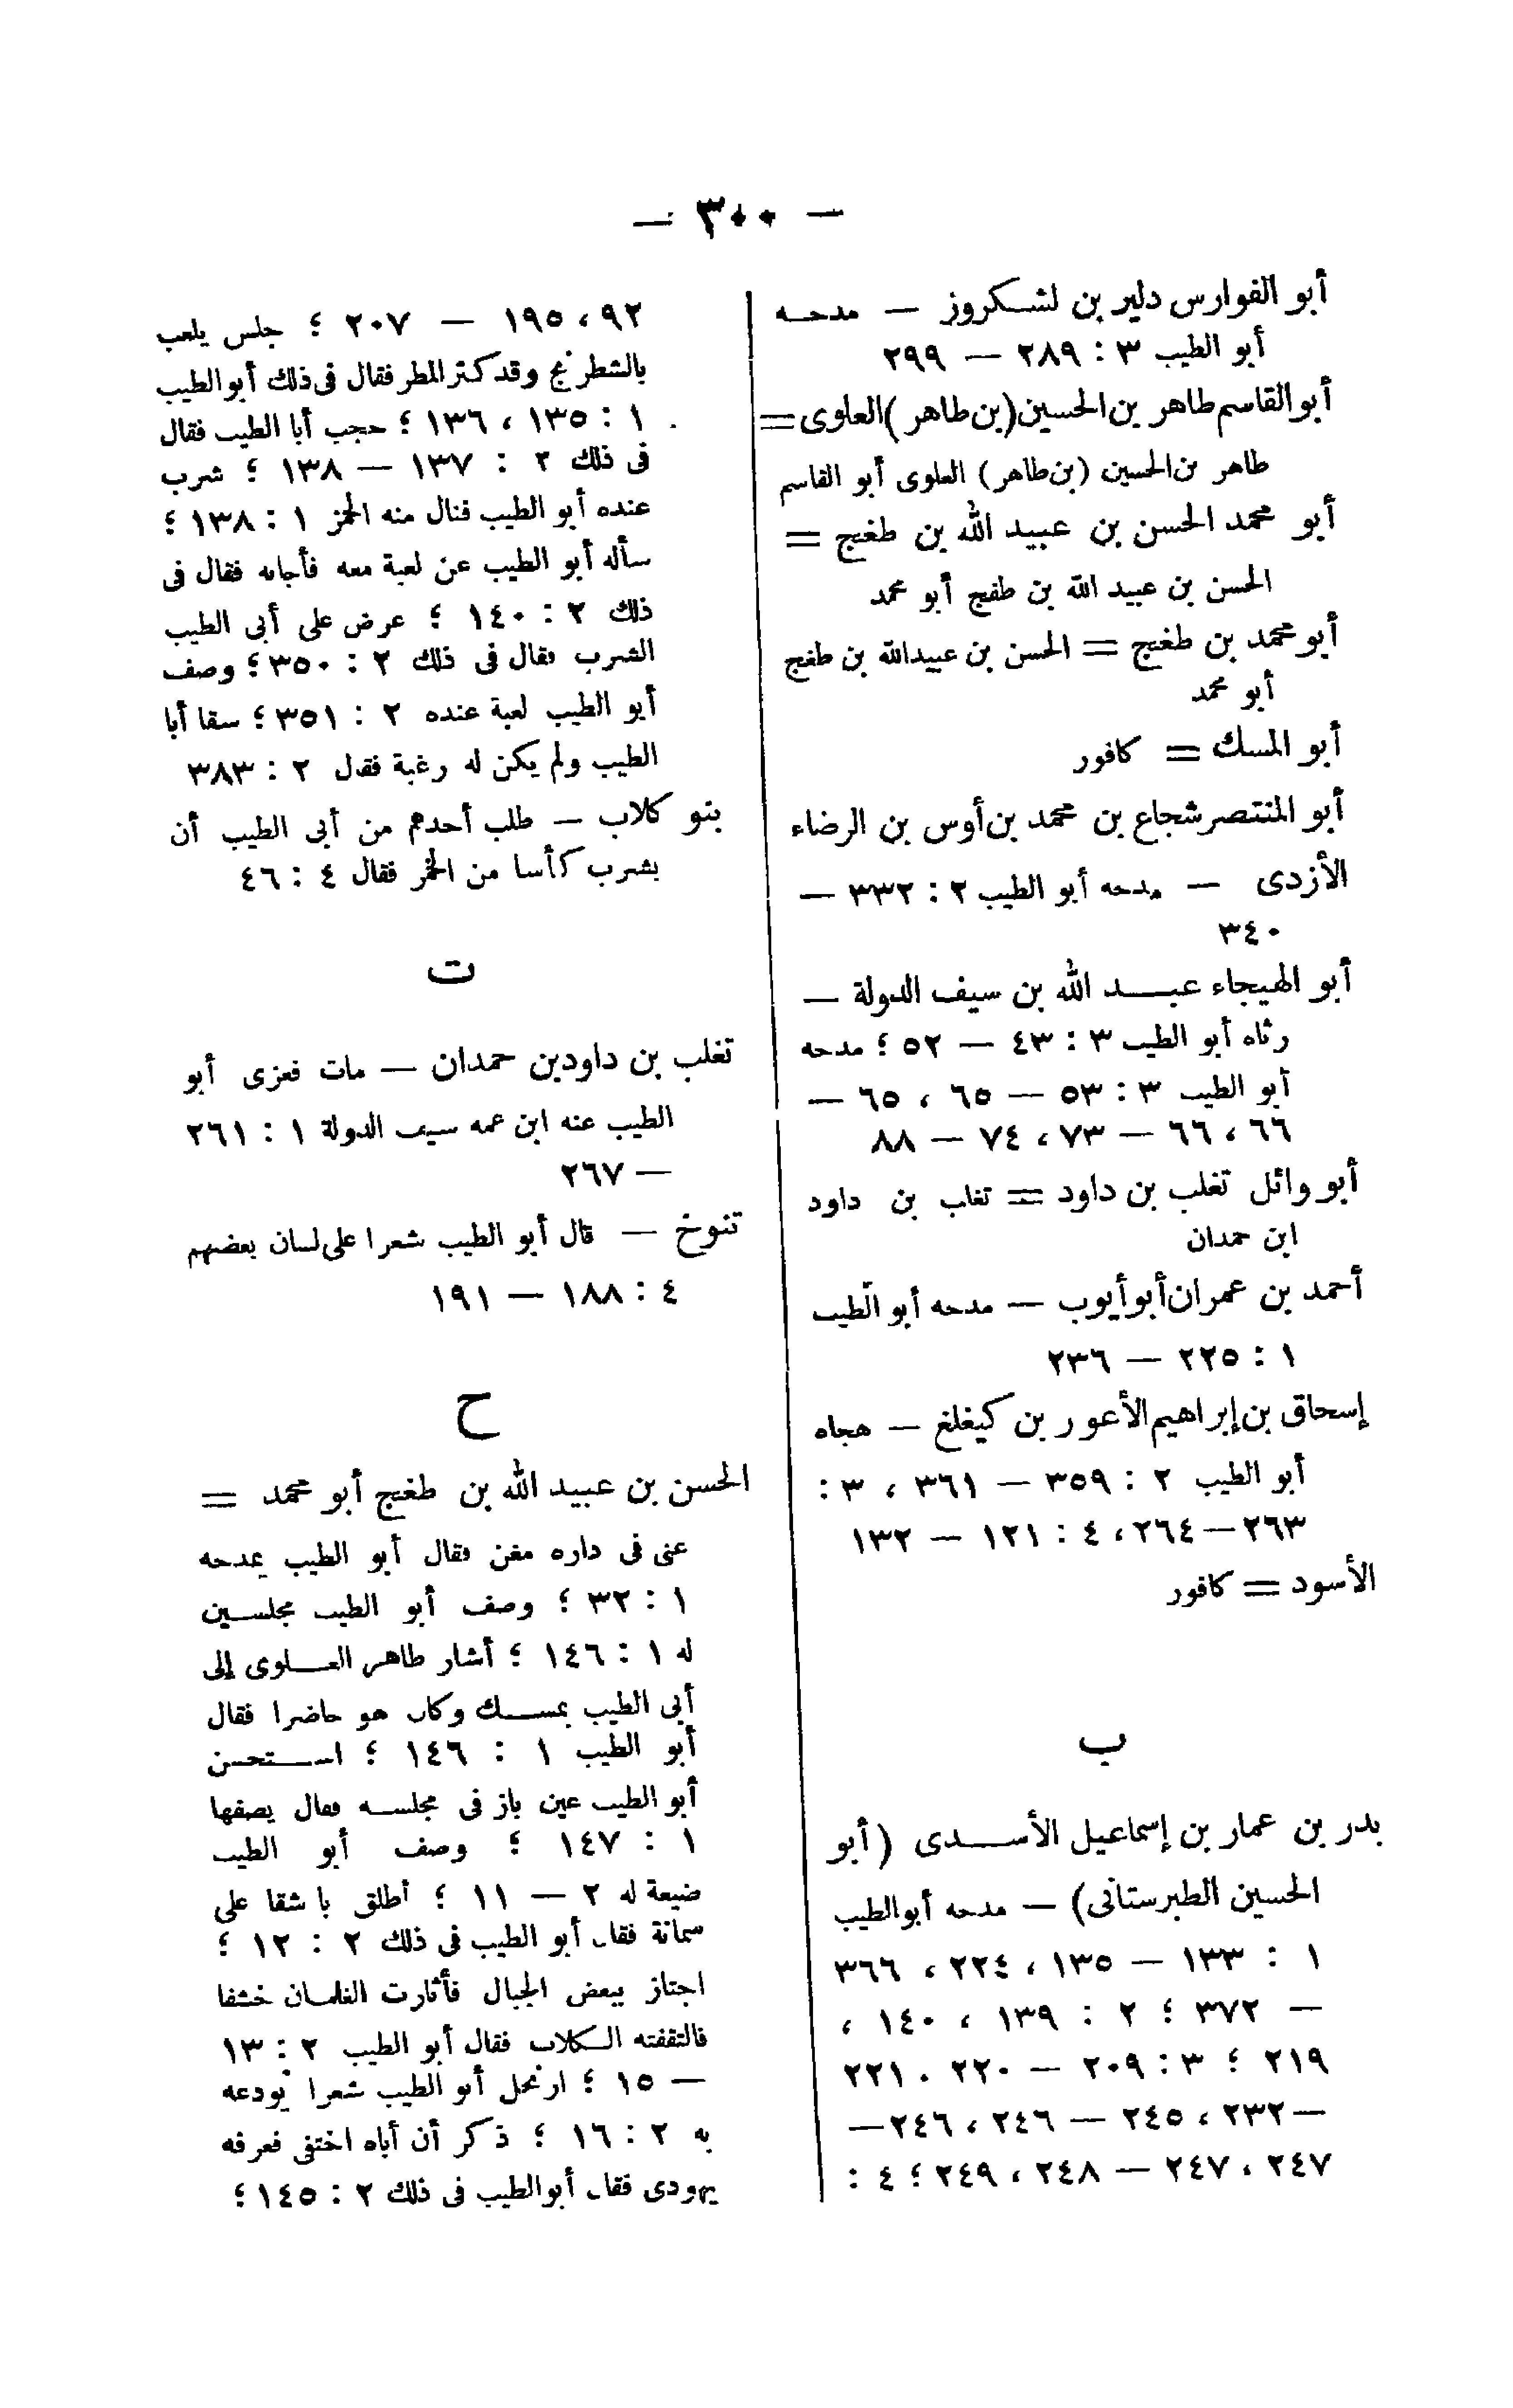 — ٣٠٠ —
أبو الفوارس دلير بن لشكروز — مدحه
أبو الطيب ٣ : ٢٨٩ — ٢٩٩
أبو القاسم طاهر بن الحسين (بن طاهر) العلوى =
طاهر بن الحسين (بن طاهر) العلوى أبو القاسم
أبو محمد الحسن بن عبيد الله بن طغج =
الحسن بن عبيد الله بن طغج أبو محمد
أبو محمد بن طغج = الحسن بن عبيد الله بن طغج
أبو محمد
أبو المسك = كافور
أبو المنتصر شجاع بن محمد بن أوس بن الرضاء
الأزدى — مدحه أبو الطيب ٢ : ٣٣٢ —
٣٤٠
أبو الهيجاء عبد الله بن سيف الدولة —
رثاه أبو الطيب ٣ : ٤٣ — ٥٢ ؛ مدحه
أبو الطيب ٣ : ٥٣ — ٦٥ ، ٦٥ —
٦٦ ، ٦٦ — ٧٣ ، ٧٤ — ٨٨
أبو وائل تغلب بن داود = تغلب بن داود
ابن حمدان
أحمد بن عمران أبو أيوب — مدحه أبو الطيب
١ : ٢٢٥ — ٢٣٦
إسحاق بن إبراهيم الأعور بن كيغلغ — هجاه
أبو الطيب ٢ : ٣٥٩ — ٣٦١ ، ٣ :
٢٦٣ — ٢٦٤ ، ٤ : ١٢١ — ١٣٢
الأسود = كافور
ب
بدر بن عمار بن إسماعيل الأسدى (أبو
الحسين الطبرستانى) — مدحه أبو الطيب
١ : ١٣٣ — ١٣٥ ، ٢٢٤ ، ٣٦٦
— ٣٧٢ ؛ ٢ : ١٣٩ ، ١٤٠ ،
٢١٩ ؛ ٣ : ٢٠٩ — ٢٢٠ . ٢٢١
— ٢٣٢ ، ٢٤٥ — ٢٤٦ ، ٢٤٦ —
٢٤٧ ، ٢٤٧ — ٢٤٨ ، ٢٤٩ ؛ ٤ :
٩٢ ، ١٩٥ — ٢٠٧ ؛ جلس يلعب
بالشطرنج وقد كثر المطر فقال فى ذلك أبو الطيب
١ : ١٣٥ ، ١٣٦ ؛ حجب أبا الطيب فقال
فى ذلك ٢ : ١٣٧ — ١٣٨ ؛ شرب
عنده أبو الطيب فنال منه الخمر ١ : ١٣٨ ؛
سأله أبو الطيب عن لعبة معه فأجابه فقال فى
ذلك ٢ : ١٤٠ ؛ عرض على أبى الطيب
الشرب فقال فى ذلك ٢ : ٣٥٠ ؛ وصف
أبو الطيب لعبة عنده ٢ : ٣٥١ ؛ سقا أبا
الطيب ولم يكن له رغبة فقال ٢ : ٣٨٣
بنو كلاب — طلب أحدهم من أبى الطيب أن
يشرب كأسا من الخمر فقال ٤ : ٤٦
ت
تغلب بن داود بن حمدان — مات فعزى أبو
الطيب عنه ابن عمه سيف الدولة ١ : ٢٦١
— ٢٦٧
تنوخ — قال أبو الطيب شعرا على لسان بعضهم
٤ : ١٨٨ — ١٩١
ح
الحسن بن عبيد الله بن طغج أبو محمد =
غنى فى داره مغن فقال أبو الطيب يمدحه
١ : ٣٢ ؛ وصف أبو الطيب مجلسين
له ١ : ١٤٦ ؛ أشار طاهر العلوى إلى
أبى الطيب بمسك وكان هو حاضرا فقال
أبو الطيب ١ : ١٤٦ ؛ استحسن
أبو الطيب عين باز فى مجلسه فقال يصفها
١ : ١٤٧ ؛ وصف أبو الطيب
ضيعة له ٢ — ١١ ؛ أطلق باشقا على
سمانة فقال أبو الطيب فى ذلك ٢ : ١٢ ؛
اجتاز ببعض الجبال فأثارت الغلمان خشفا
فالتقفته الكلاب فقال أبو الطيب ٢ : ١٣
— ١٥ ؛ ارتحل أبو الطيب شعرا يودعه
به ٢ : ١٦ ؛ ذكر أن أباه اختفى فعرفه
يهودى فقال أبو الطيب فى ذلك ٢ : ١٤٥ ؛